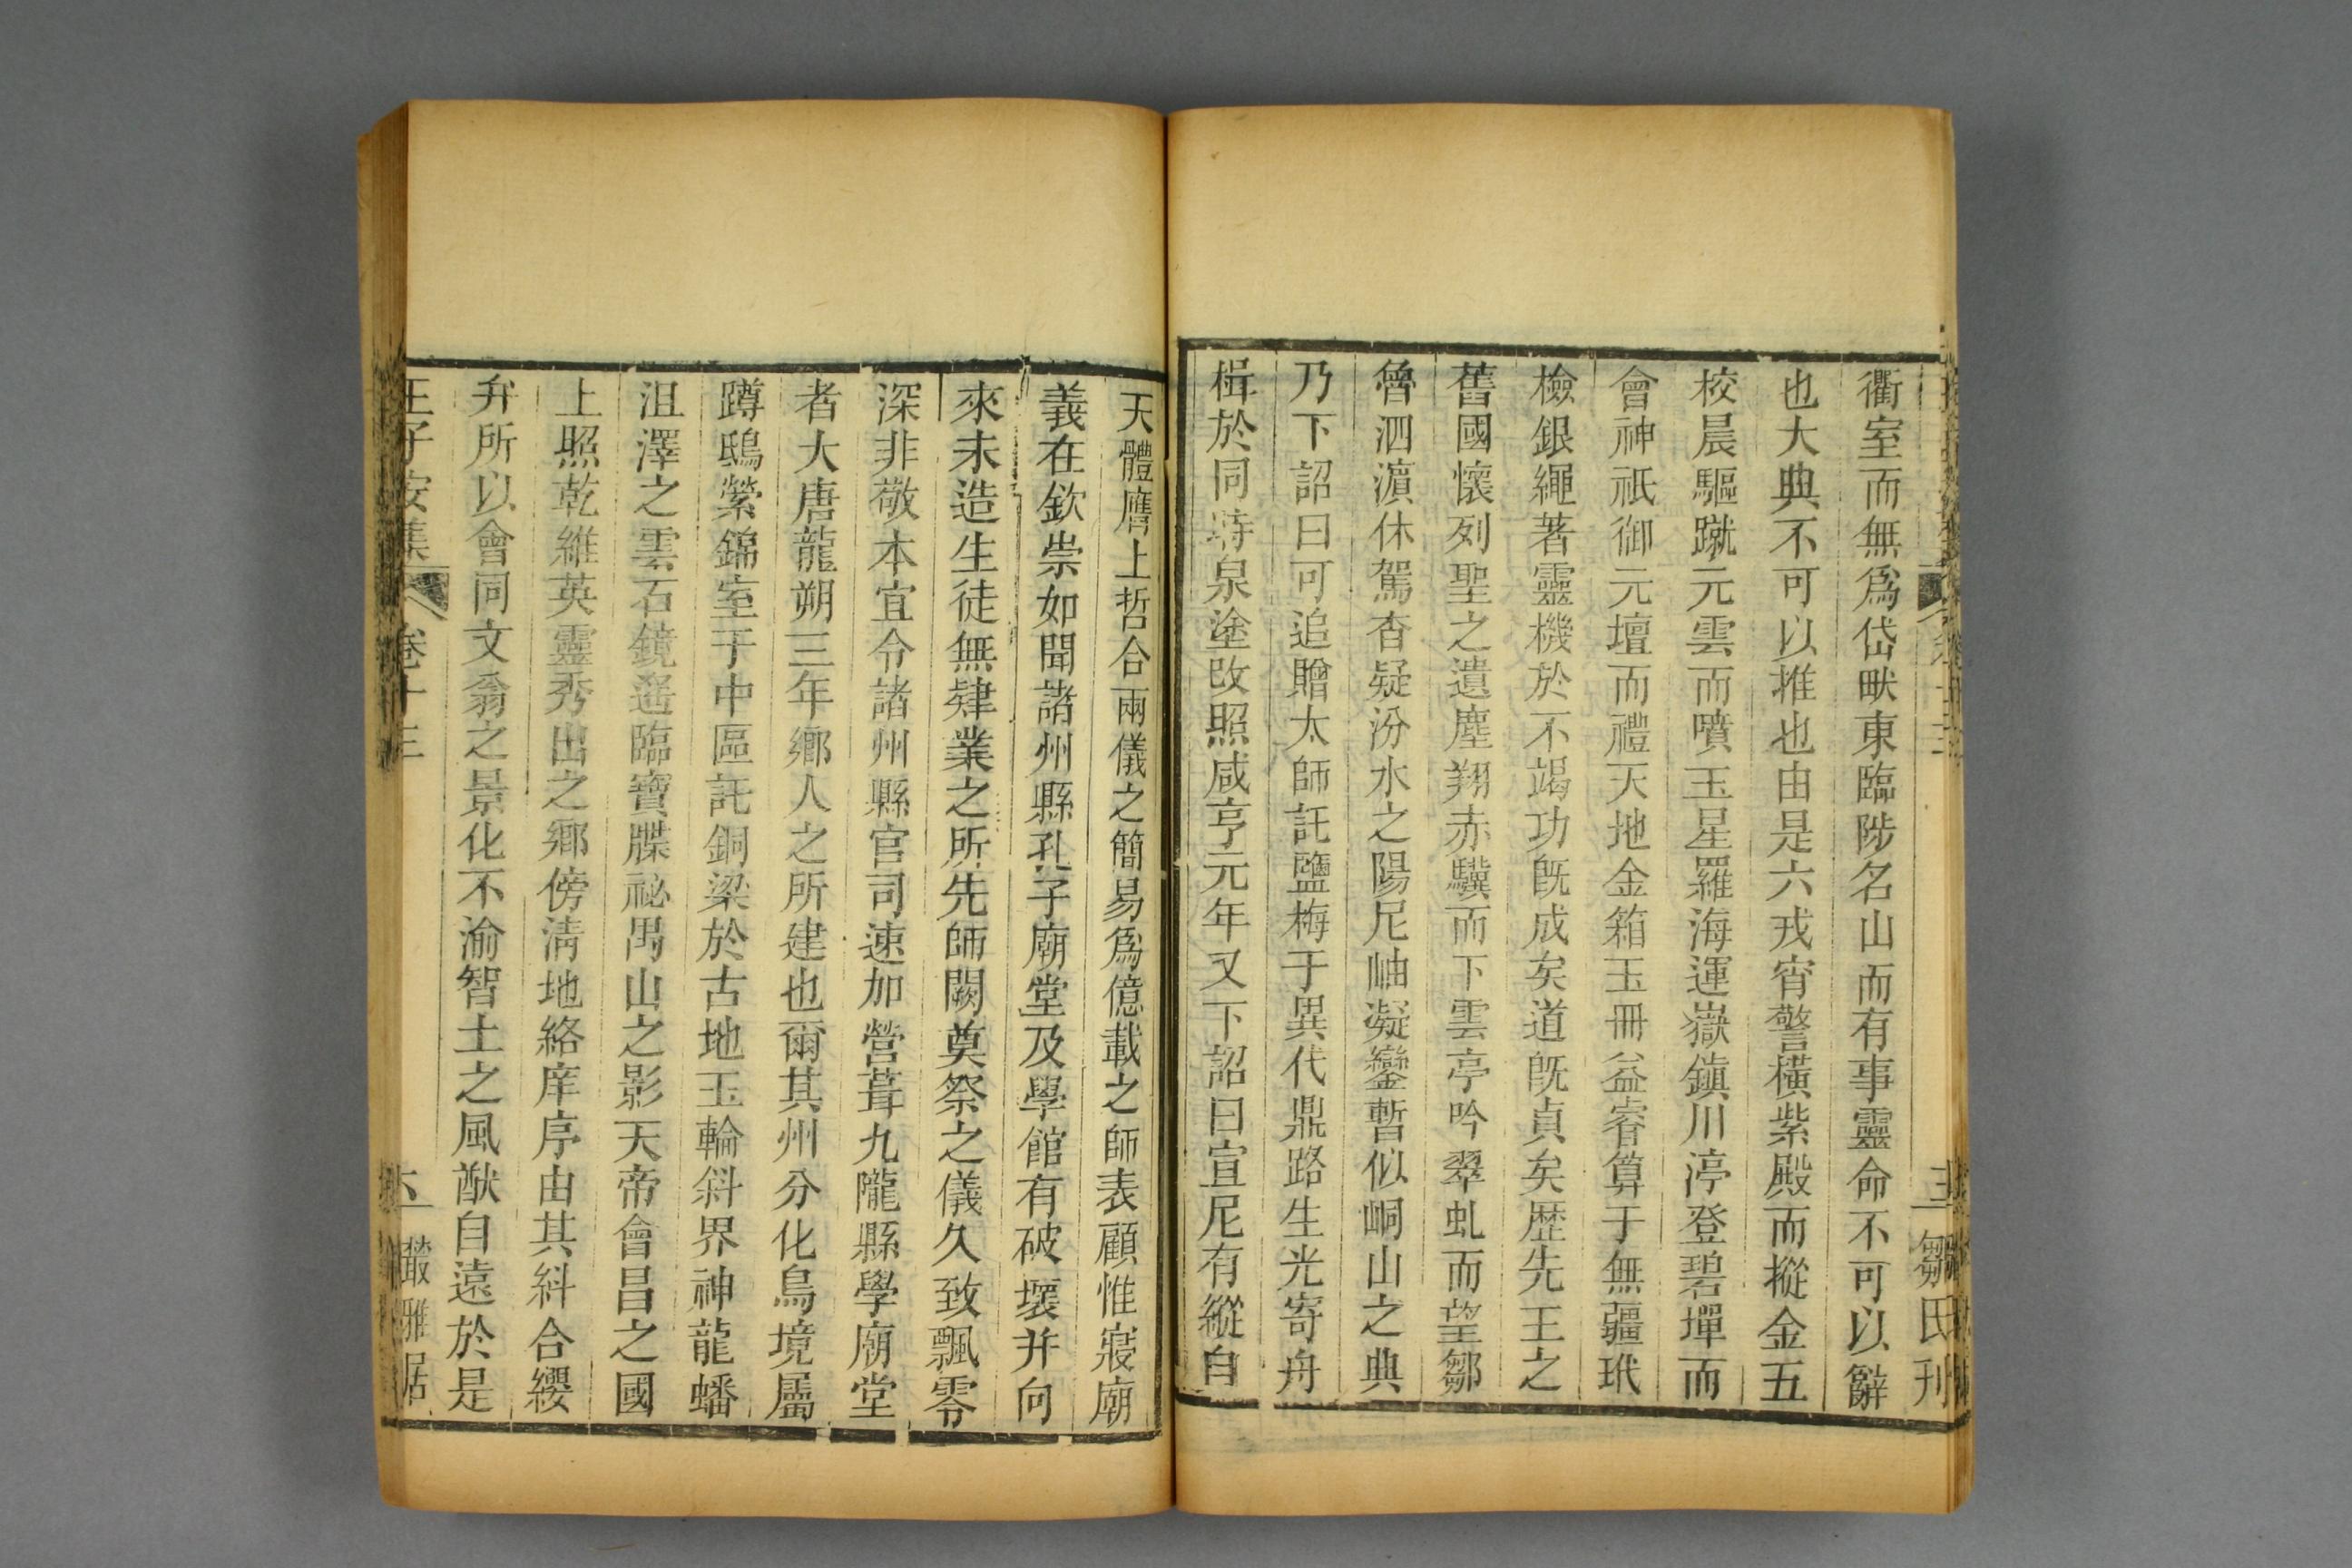 衢室而無爲岱畎東臨陟名山而有事靈命不可以辭
也大典不可以推也由是六戎宵警橫紫殿而摐金五
校晨驅蹴元雲而噴玉星羅海運嶽鎮川渟登碧墠而
會神祇御元壇而禮天地金箱玉冊益睿算于無疆玳
檢銀繩著靈機於不竭功旣成矣道旣貞矣歷先王之
舊國懷列聖之遺塵翔赤驥而下雲亭吟翠虬而望鄒
魯泗濵休駕杳疑汾水之陽尼岫凝鑾暫似峒山之典
乃下詔曰可追贈太師託鹽梅于異代鼎路生光寄舟
楫於同時泉塗改照咸亨元年又下詔曰宣尼有縱自
鄒氏刊
天體膺上哲合兩儀之簡易爲億載之師表顧惟寢廟
義在欽崇如聞諸州縣孔子廟堂及學館有破壞并向
來未造生徒無肄業之所先師闕奠祭之儀久致飄零
深非敬本宜令諸州縣官司速加營葺九隴縣學廟堂
者大唐龍朔三年鄉人之所建也爾其州分化鳥境屬
蹲鴟縈錦室于中區託銅梁於古地玉輪斜界神龍蟠
沮澤之雲石鏡遥臨寶牒祕禺山之影天帝會昌之國
上照乾維英靈秀出之鄉傍清地絡庠序由其糾合纓
弁所以會同文翁之景化不渝智士之風猷自遠於是
王子安集 卷十三 六 叢雅居